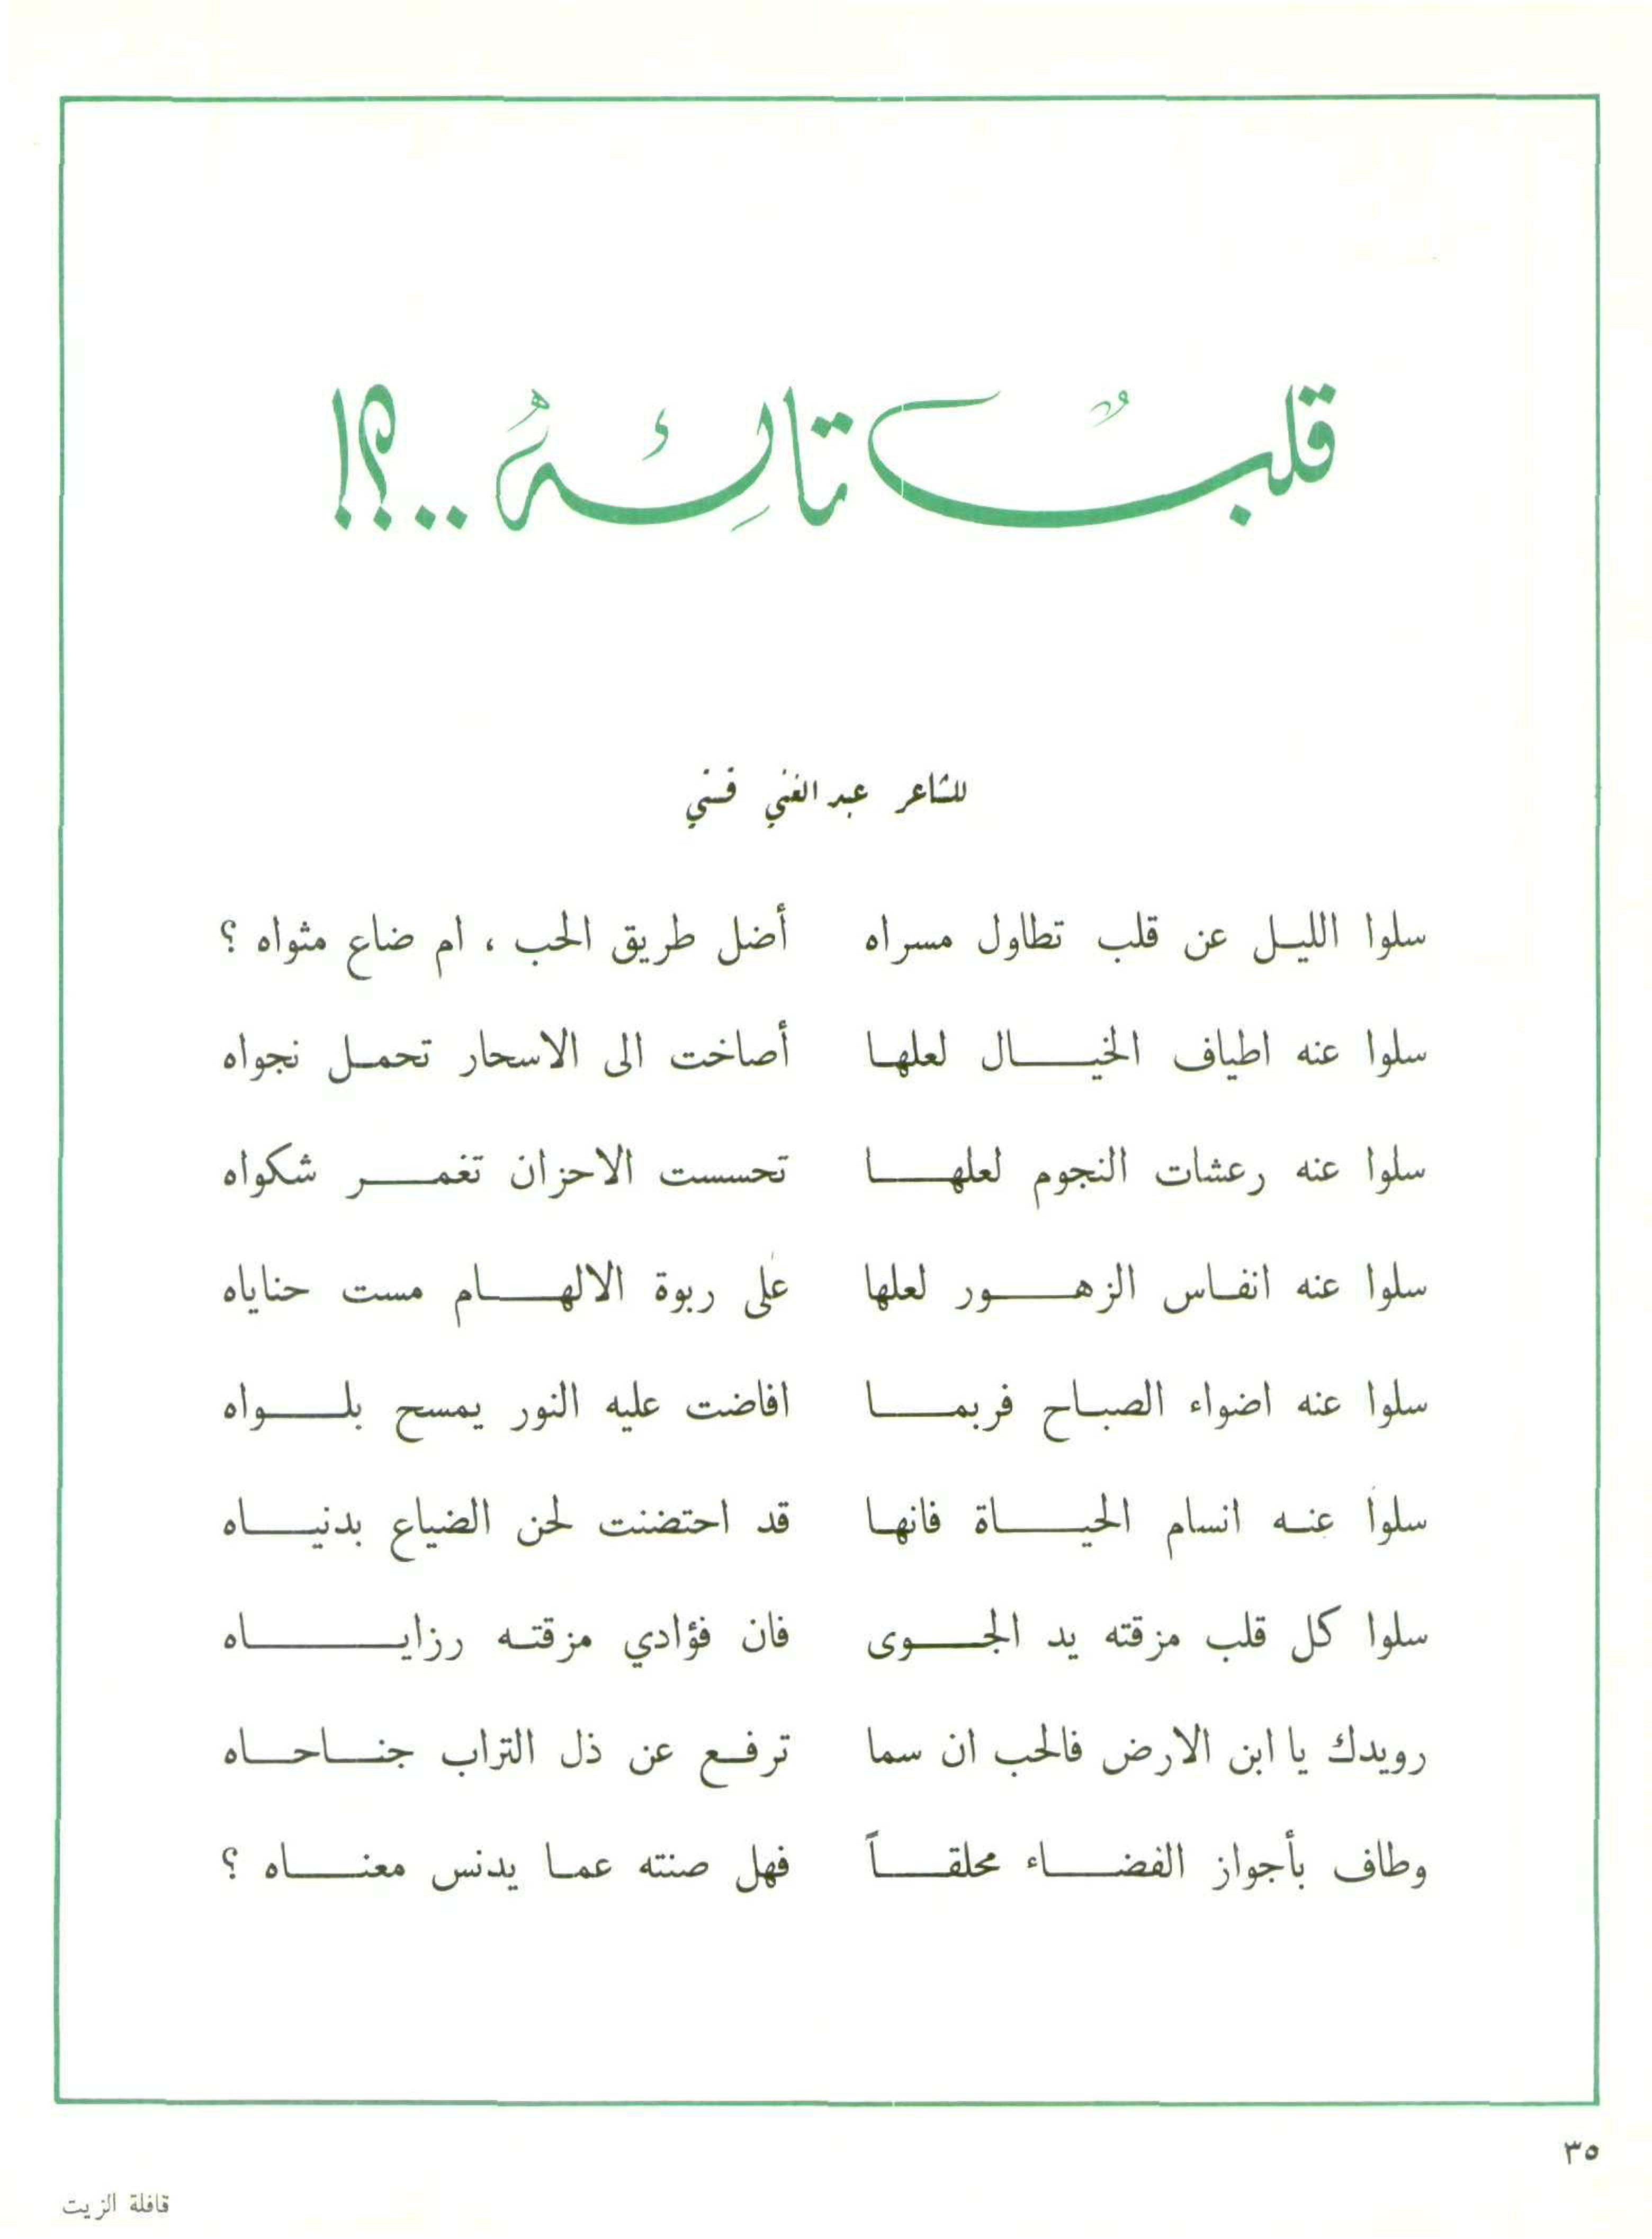 قلبٌ تائِهٌ ..؟!
للشاعر عبد الغني قستي
سلوا الليل عن قلب تطاول مسراه أضل طريق الحب ، ام ضاع مثواه ؟
سلوا عنه اطياف الخيال لعلها أصاخت الى الاسحار تحمل نجواه
سلوا عنه رعشات النجوم لعلها تحسست الاحزان تغمر شكواه
سلوا عنه انفاس الزهور لعلها على ربوة الالهام مست حناياه
سلوا عنه اضواء الصباح فربما افاضت عليه النور يمسح بلواه
سلوا عنه انسام الحياة فانها قد احتضنت لحن الضياع بدنياه
سلوا كل قلب مزقته يد الجوى فان فؤادي مزقته رزاياه
رويدك يا ابن الارض فالحب ان سما ترفع عن ذل التراب جناحاه
وطاف بأجواز الفضاء محلقاً فهل صنته عما يدنس معناه ؟
٣٥
قافلة الزيت